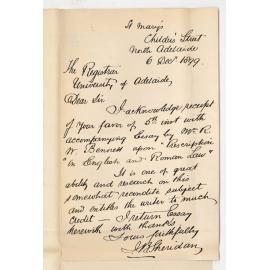 St Mary's
Childers Street
North Adelaide
6 Decr 1899.
The Registrar
University of Adelaide,
Dear Sir
I acknowledge receipt
of your favor of 5th inst with
accompanying Essay by Mr R.
W. Bennett upon "Prescription
in English and Roman Law"
It is one of great
ability and research on this
somewhat recondite subject
and entitles the writer to much
credit — I return Essay
herewith with thanks
Yours faithfully
Sheridan